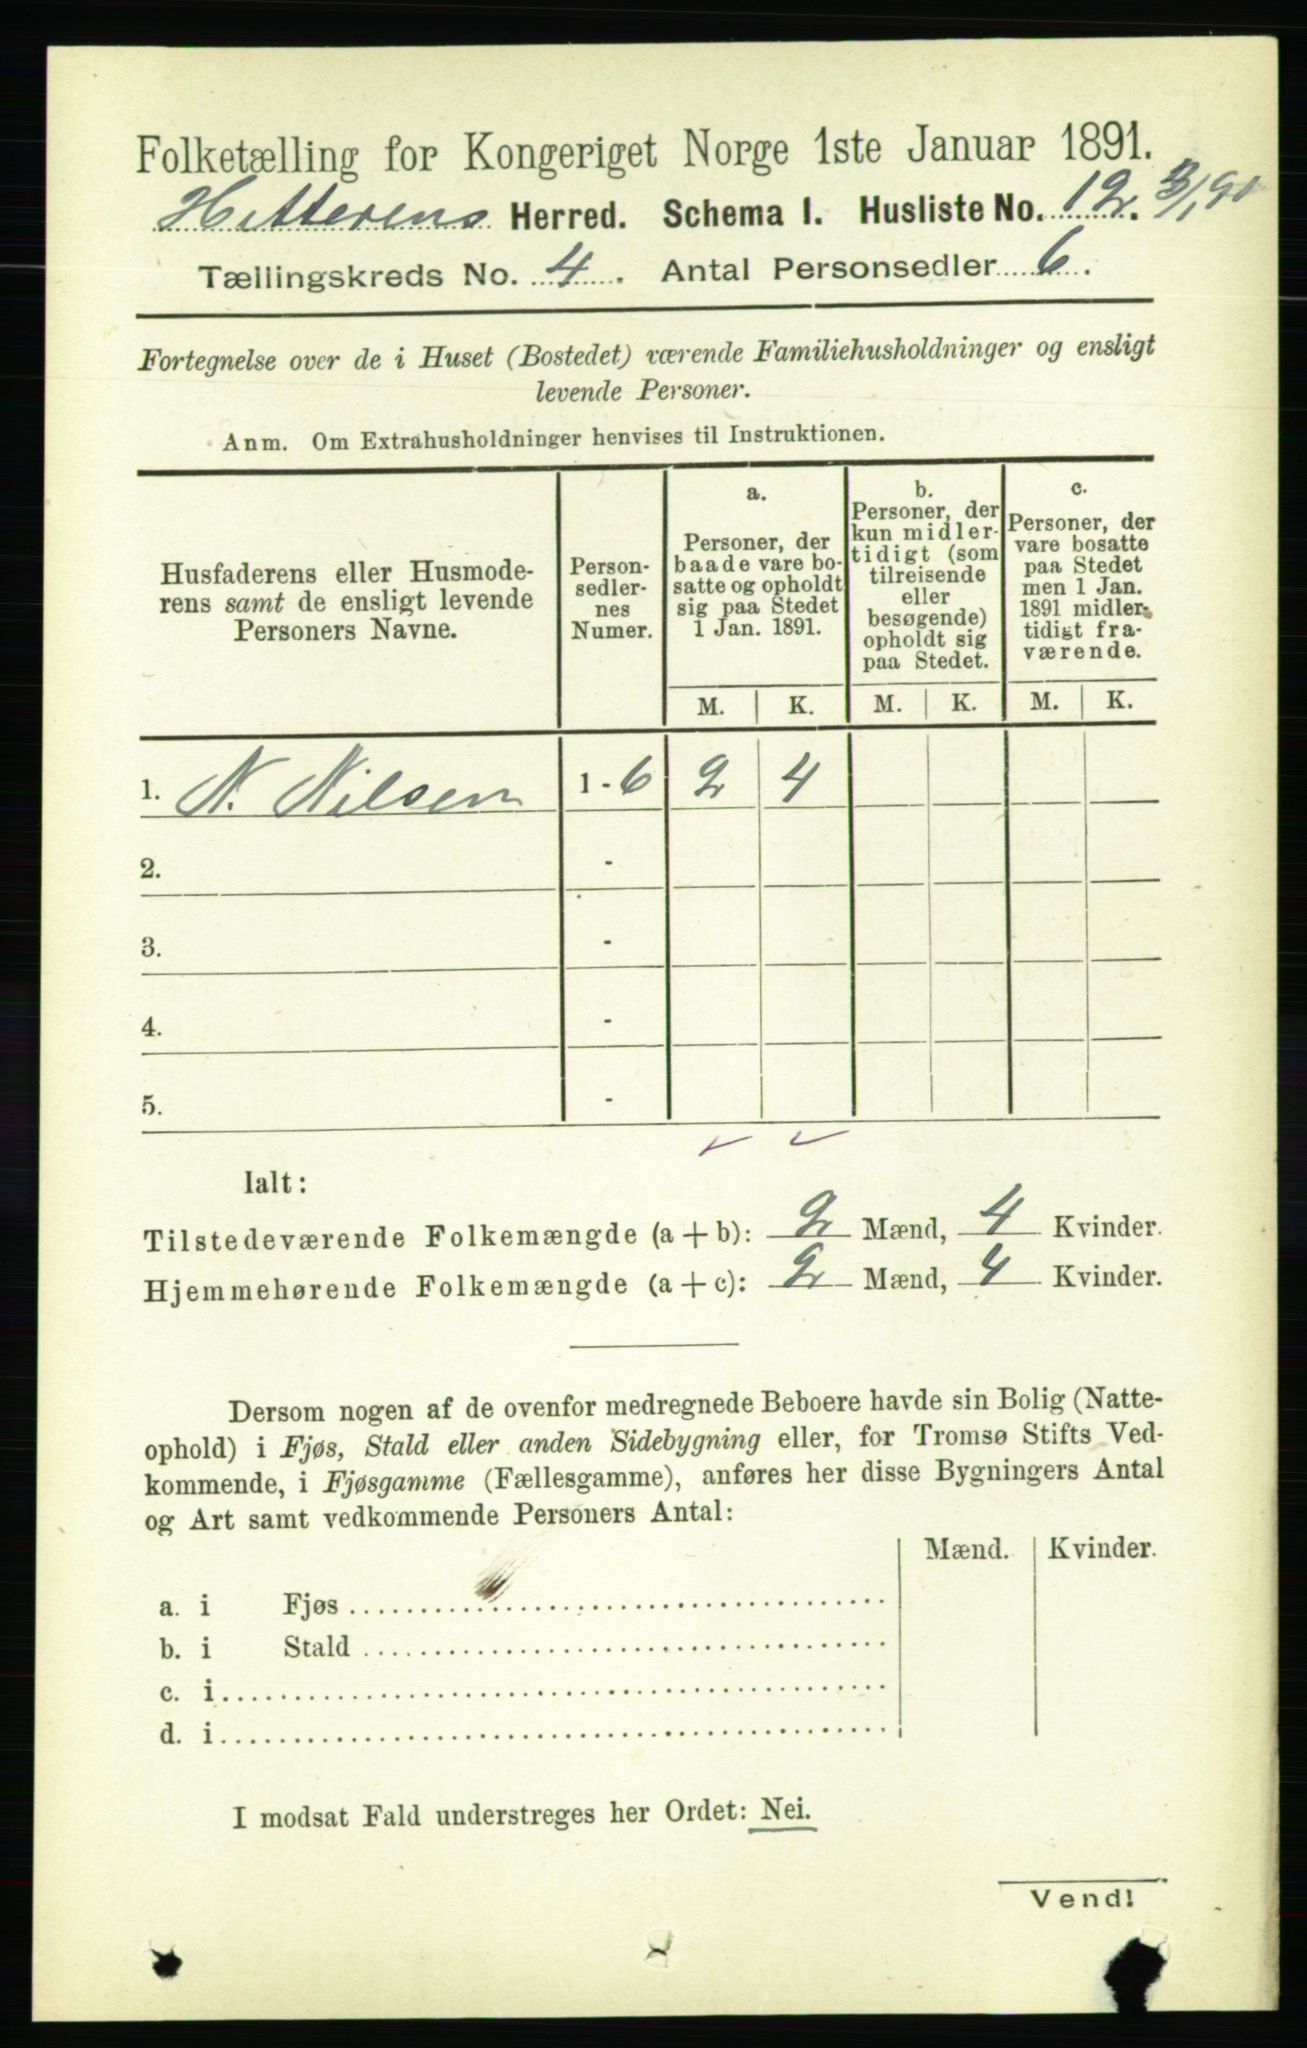 Folketælling for Kongeriget Norge 1ste Januar 1891.
Hitterens Herred. Schema I. Husliste No. 12.
Tællingskreds No. 4. Antal Personsedler 6.
Fortegnelse over de i Huset (Bostedet) værende Familiehusholdninger og ensligt
levende Personer.
Anm. Om Extrahusholdninger henvises til Instruktionen.
Husfaderens eller Husmode-
rens samt de ensligt levende
Personers Navne.
Person-
sedler-
nes
Numer.
a.
Personer, der
baade vare bo-
satte og opholdt
sig paa Stedet
1 Jan. 1891.
b.
Personer, der
kun midler-
tidigt (som
tilreisende
eller
besøgende)
opholdt sig
paa Stedet.
c.
Personer, der
vare bosatte
paa Stedet
men 1 Jan.
1891 midler-
tidigt fra-
værende.
M. K. M. K. M. K.
1. N. Nilsen 1 - 6 2 4
2. -
3. -
4. -
5. -
Ialt:
Tilstedeværende Folkemængde (a + b): 2 Mænd, 4 Kvinder.
Hjemmehørende Folkemængde (a + c): 2 Mænd, 4 Kvinder.
Dersom nogen af de ovenfor medregnede Beboere havde sin Bolig (Natte-
ophold) i Fjøs, Stald eller anden Sidebygning eller, for Tromsø Stifts Ved-
kommende, i Fjøsgamme (Fællesgamme), anføres her disse Bygningers Antal
og Art samt vedkommende Personers Antal:
Mænd. Kvinder.
a. i Fjøs
b. i Stald
c. i
d. i
I modsat Fald understreges her Ordet: Nei.
Vend!